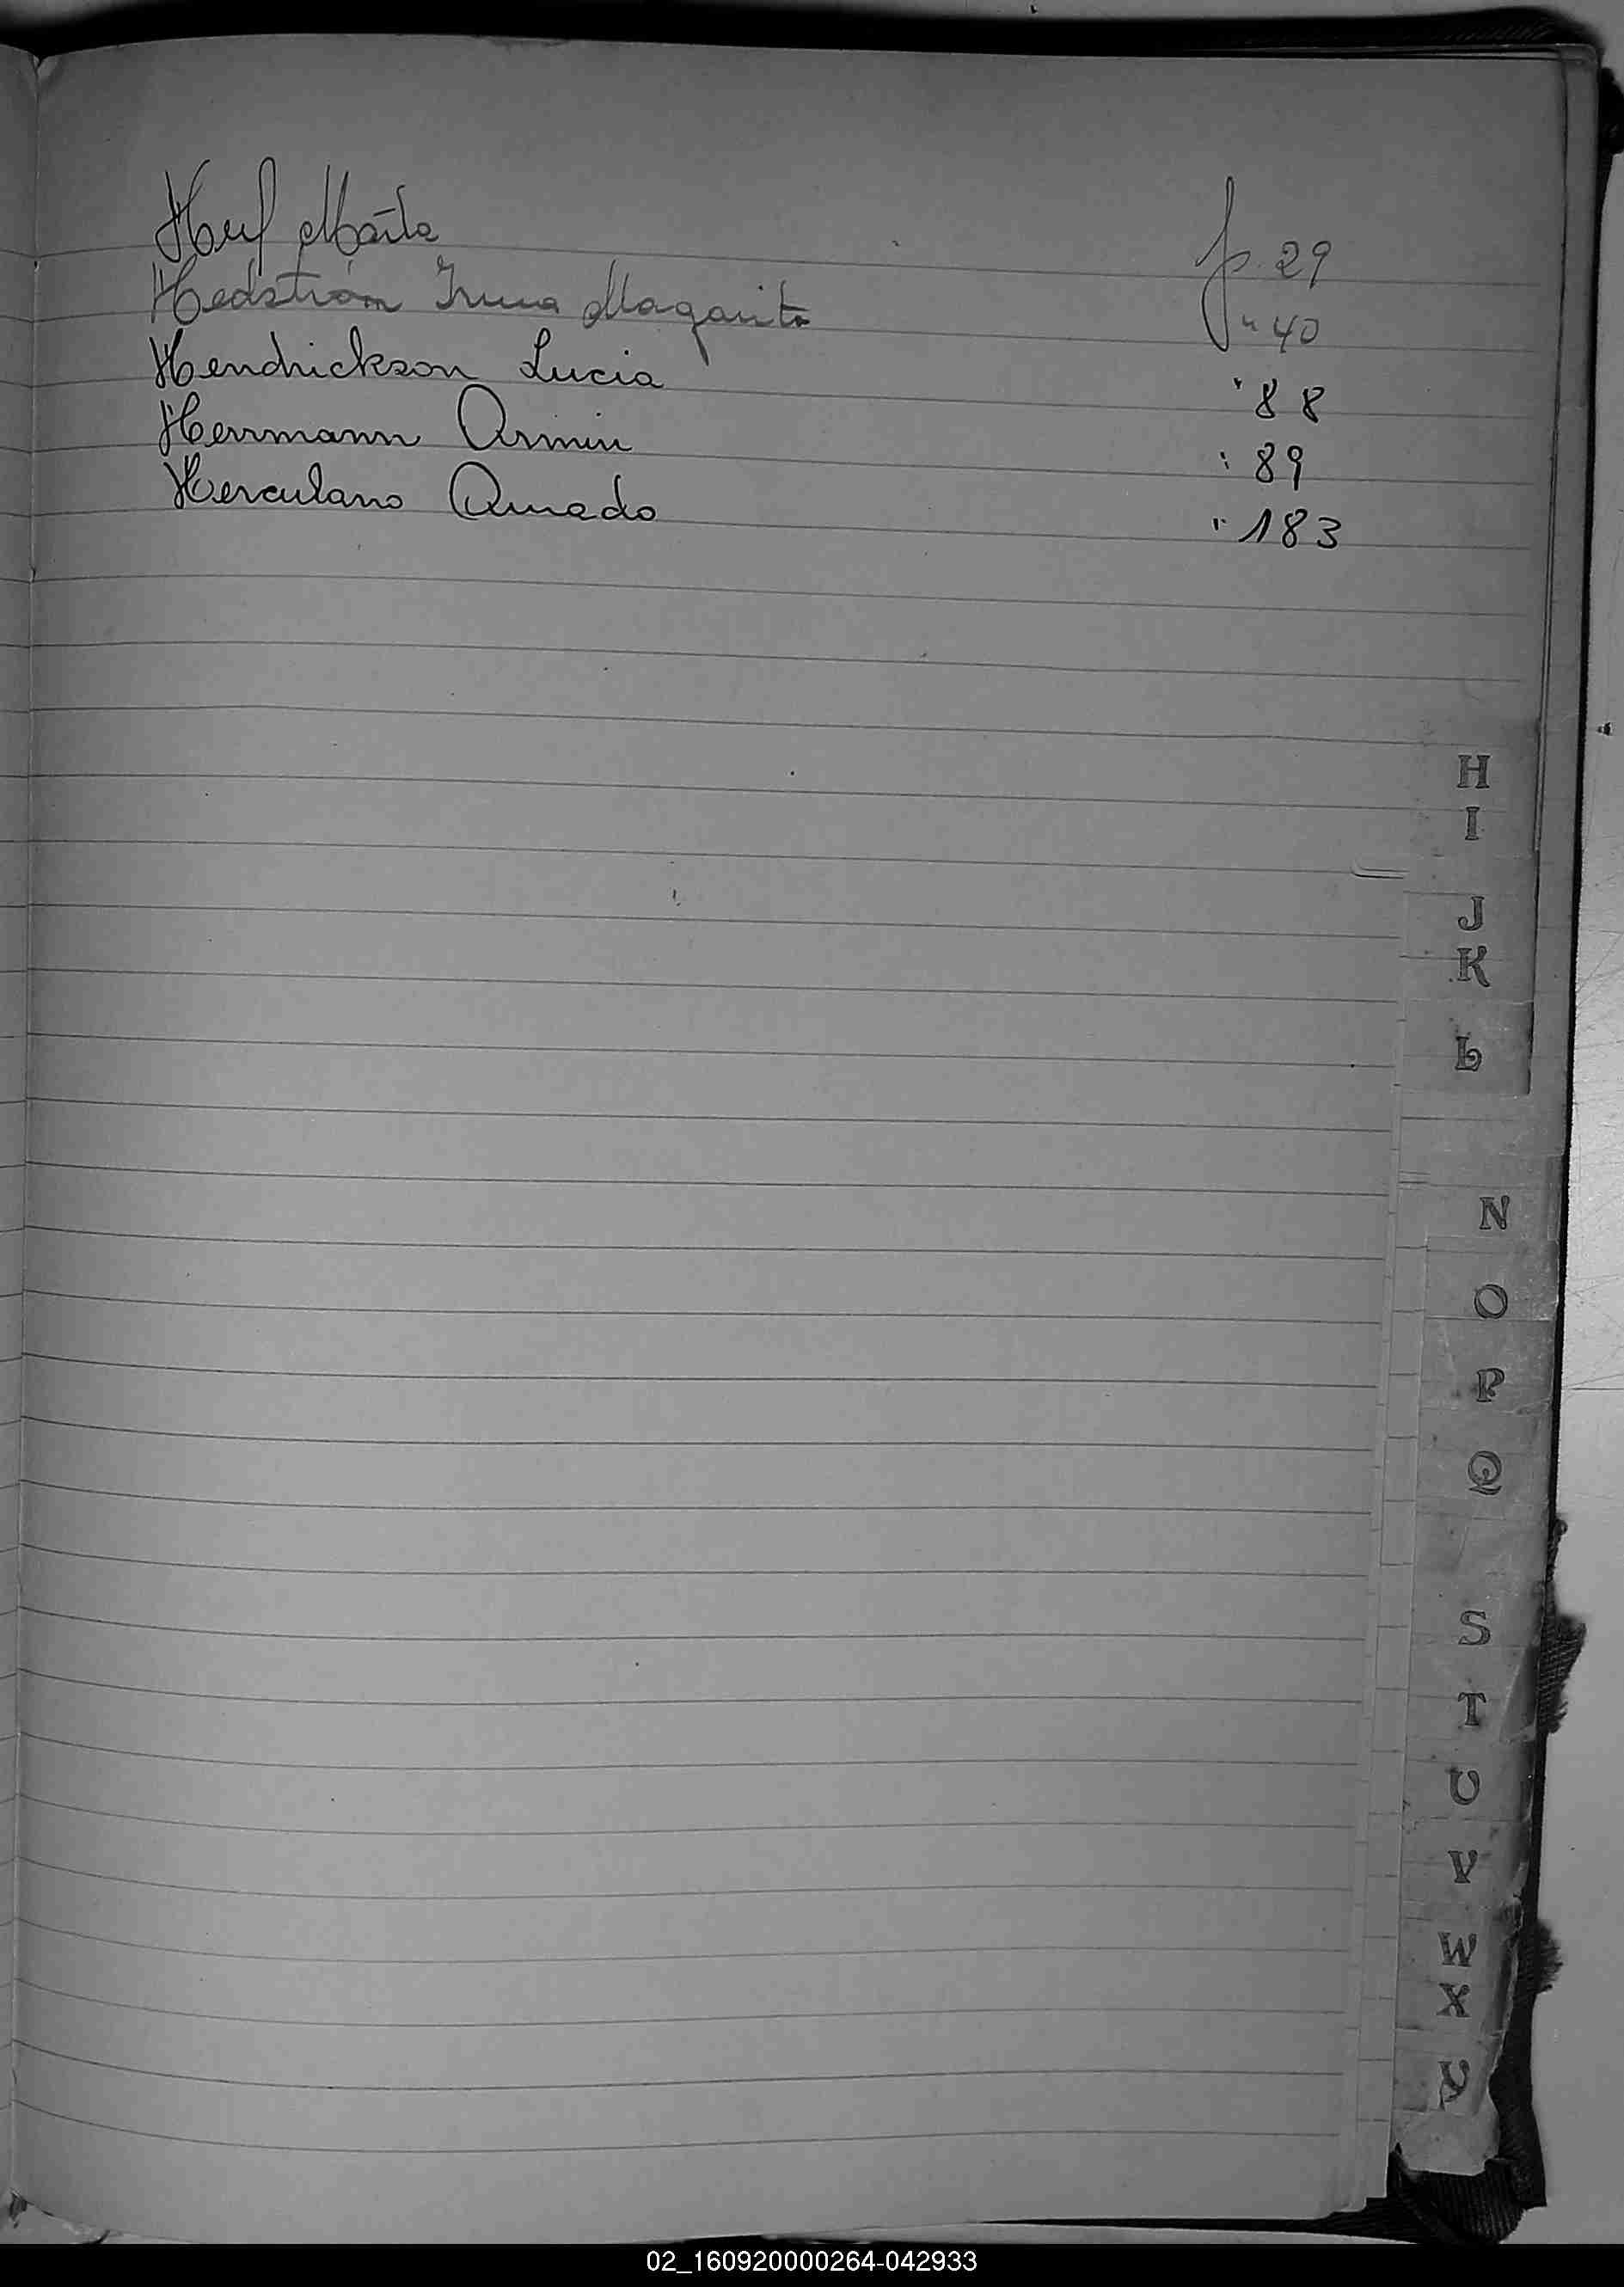 Herf Maíta p. 29
Hedström Irma Magarita " 40
Hendrickson Lucia " 88
Herrmann Armin " 89
Herculano Amado " 183
H
I
J
K
L
N
O
P
Q
S
T
U
V
W
X
Y
02_160920000264-042933